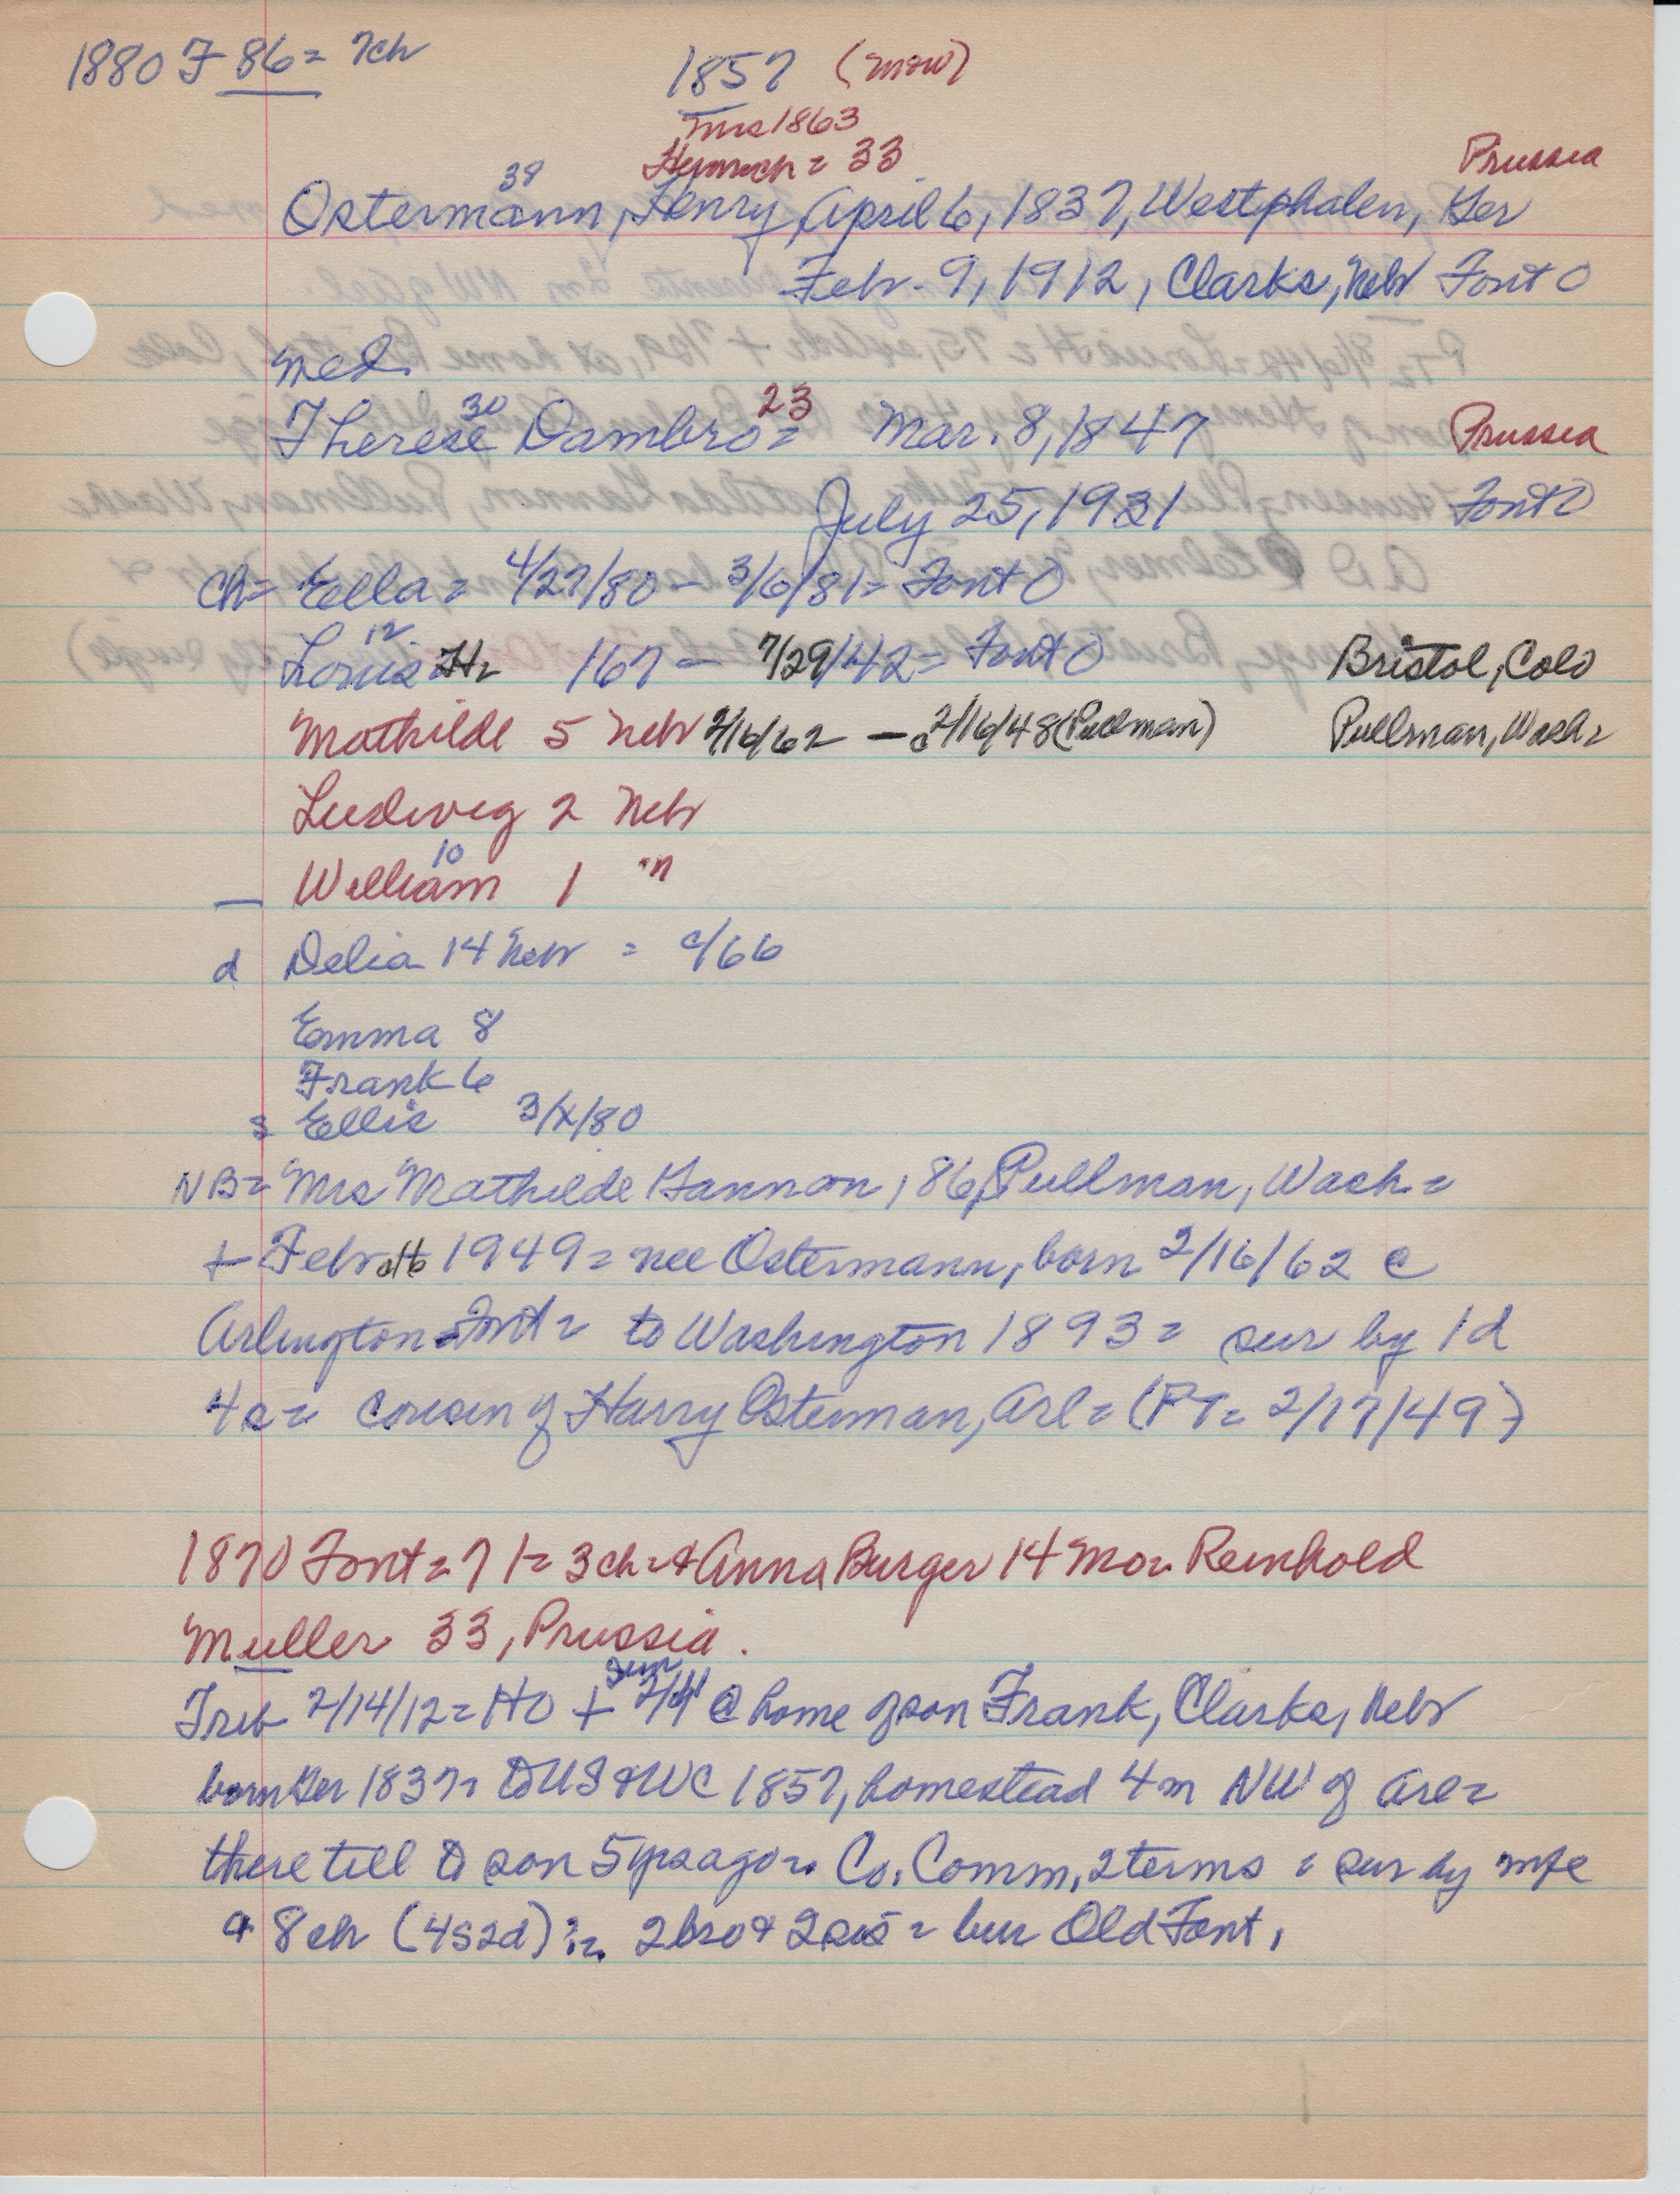 1880 F 86 = 7ch
1857 (mow)
mrs 1863
Heinrich = 33
Prussia
38
Ostermann, Henry, April 6, 1837, Westphalen, Ger
Feb. 9, 1912, Clarks, Nebr Font O
med
30 23
Therese Dambro = Mar. 8, 1847 Prussia
July 25, 1931 Font O
Ch = Eella = 4/27/80 - 3/6/81 = Font O
12
Louis H = 167 - 7/29/42 = Font O Bristol, Colo
Mathilde 5 Nebr 2/16/62 - c 2/16/48 (Pullman) Pullman, Wash =
Ludwig 2 Nebr
10
— William 1 "
d Delia 14 Nebr = c/66
Emma 8
Frank 6
s Ellis 3/X/80
NB = Mrs Mathilde Gannon, 86, Pullman, Wash. =
+ Feb 1949 = nee Ostermann, born 2/16/62 @
Arlington-Font = to Washington 1893 = sur by 1d
4s = cousin of Harry Osterman, Arl = (PT = 2/17/49)
1870 Font = 71 = 3ch = & Anna Burger 14 Mo = Reinhold
Muller 33, Prussia.
Sun
Trib 2/14/12 = HO + @ home of son Frank, Clarks, Nebr
born Ger 1837 = to US & WC 1857, homestead 4m NW of Arl =
there till to son 5 yrs ago = Co. Comm, 2 terms = sur by wife
& 8 ch (4s2d) = 2 bro & 2 sis = bur Old Font.